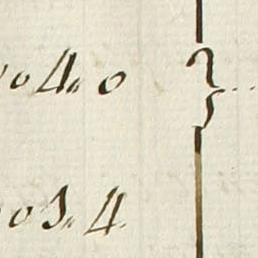 0 4. 0
0 3. 4.